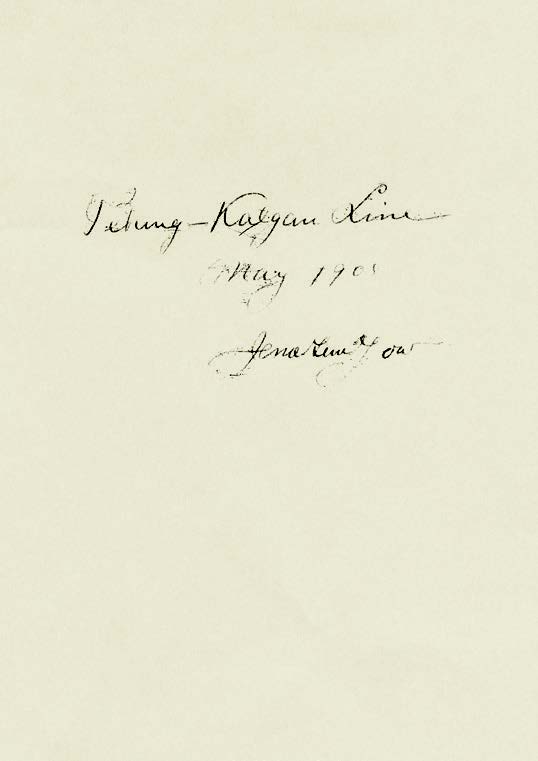 Peking-Kalgan Line
May 190
Jeme Tien Yow